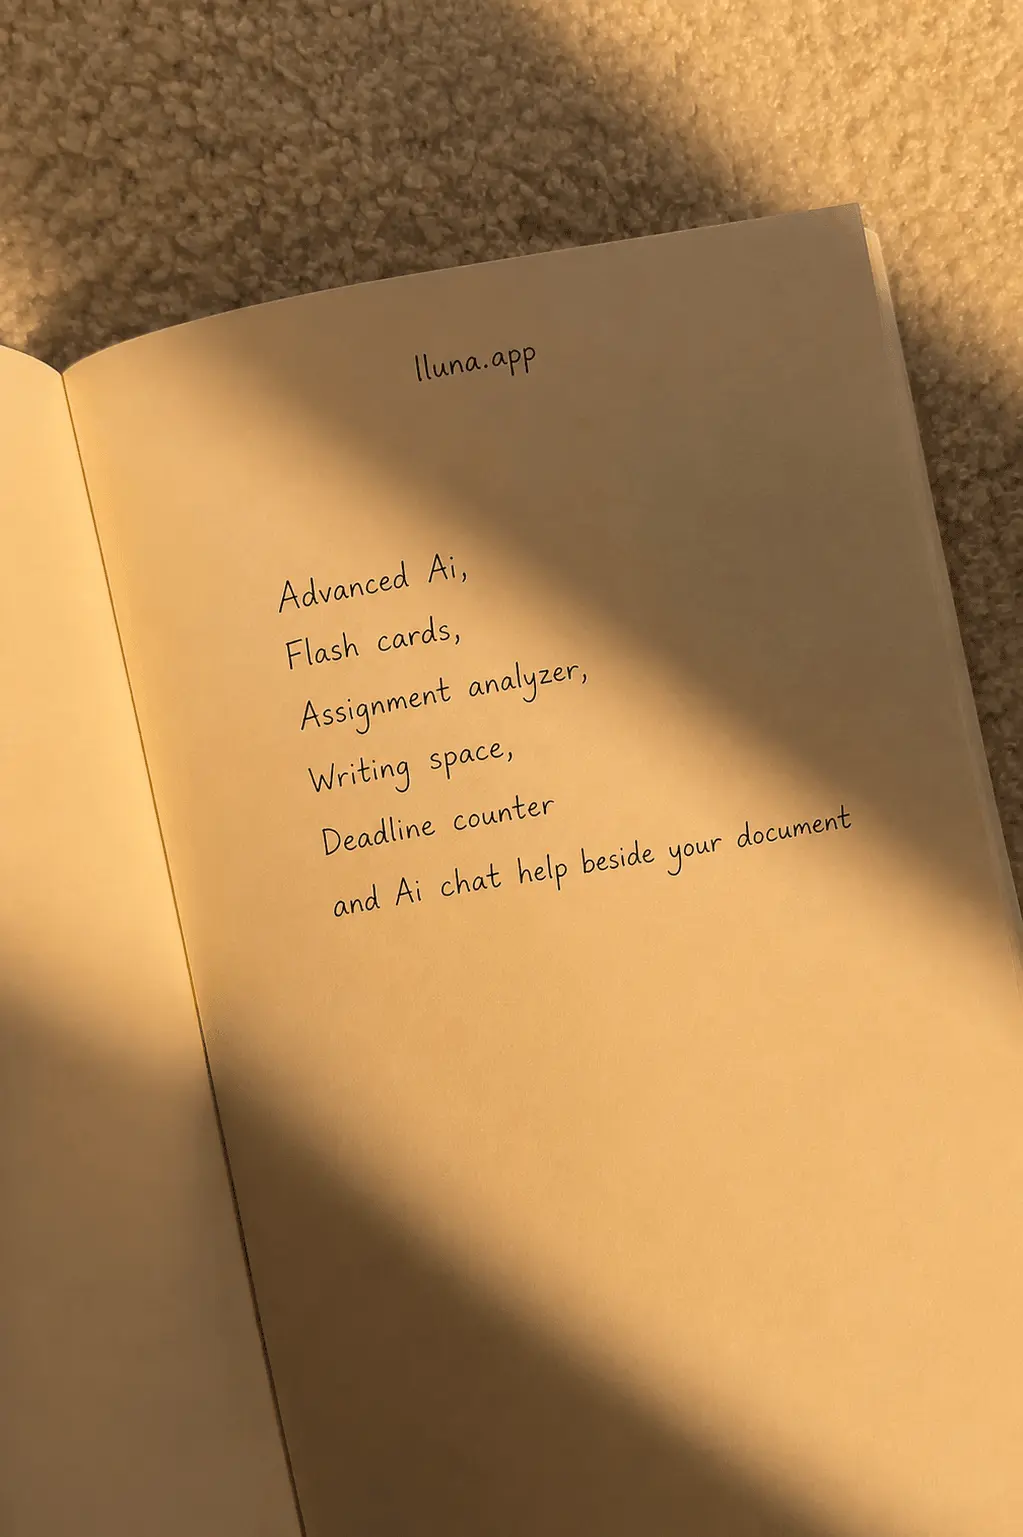 lluna.app
Advanced Ai,
Flash cards,
Assignment analyzer,
Writing space,
Deadline counter
and Ai chat help beside your document